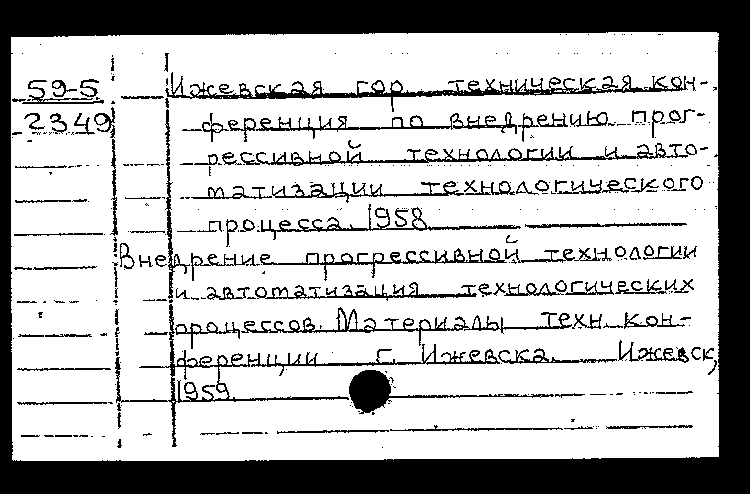 59-5
2349
Ижевская гор. техническая кон-
ференция по внедрению прог-
рессивной технологии и авто-
матизации технологического
процесса. 1958
Внедрение прогрессивной технологии
и автоматизация технологических
процессов. Материалы техн. кон-
ференции г. Ижевска. Ижевск,
1959.